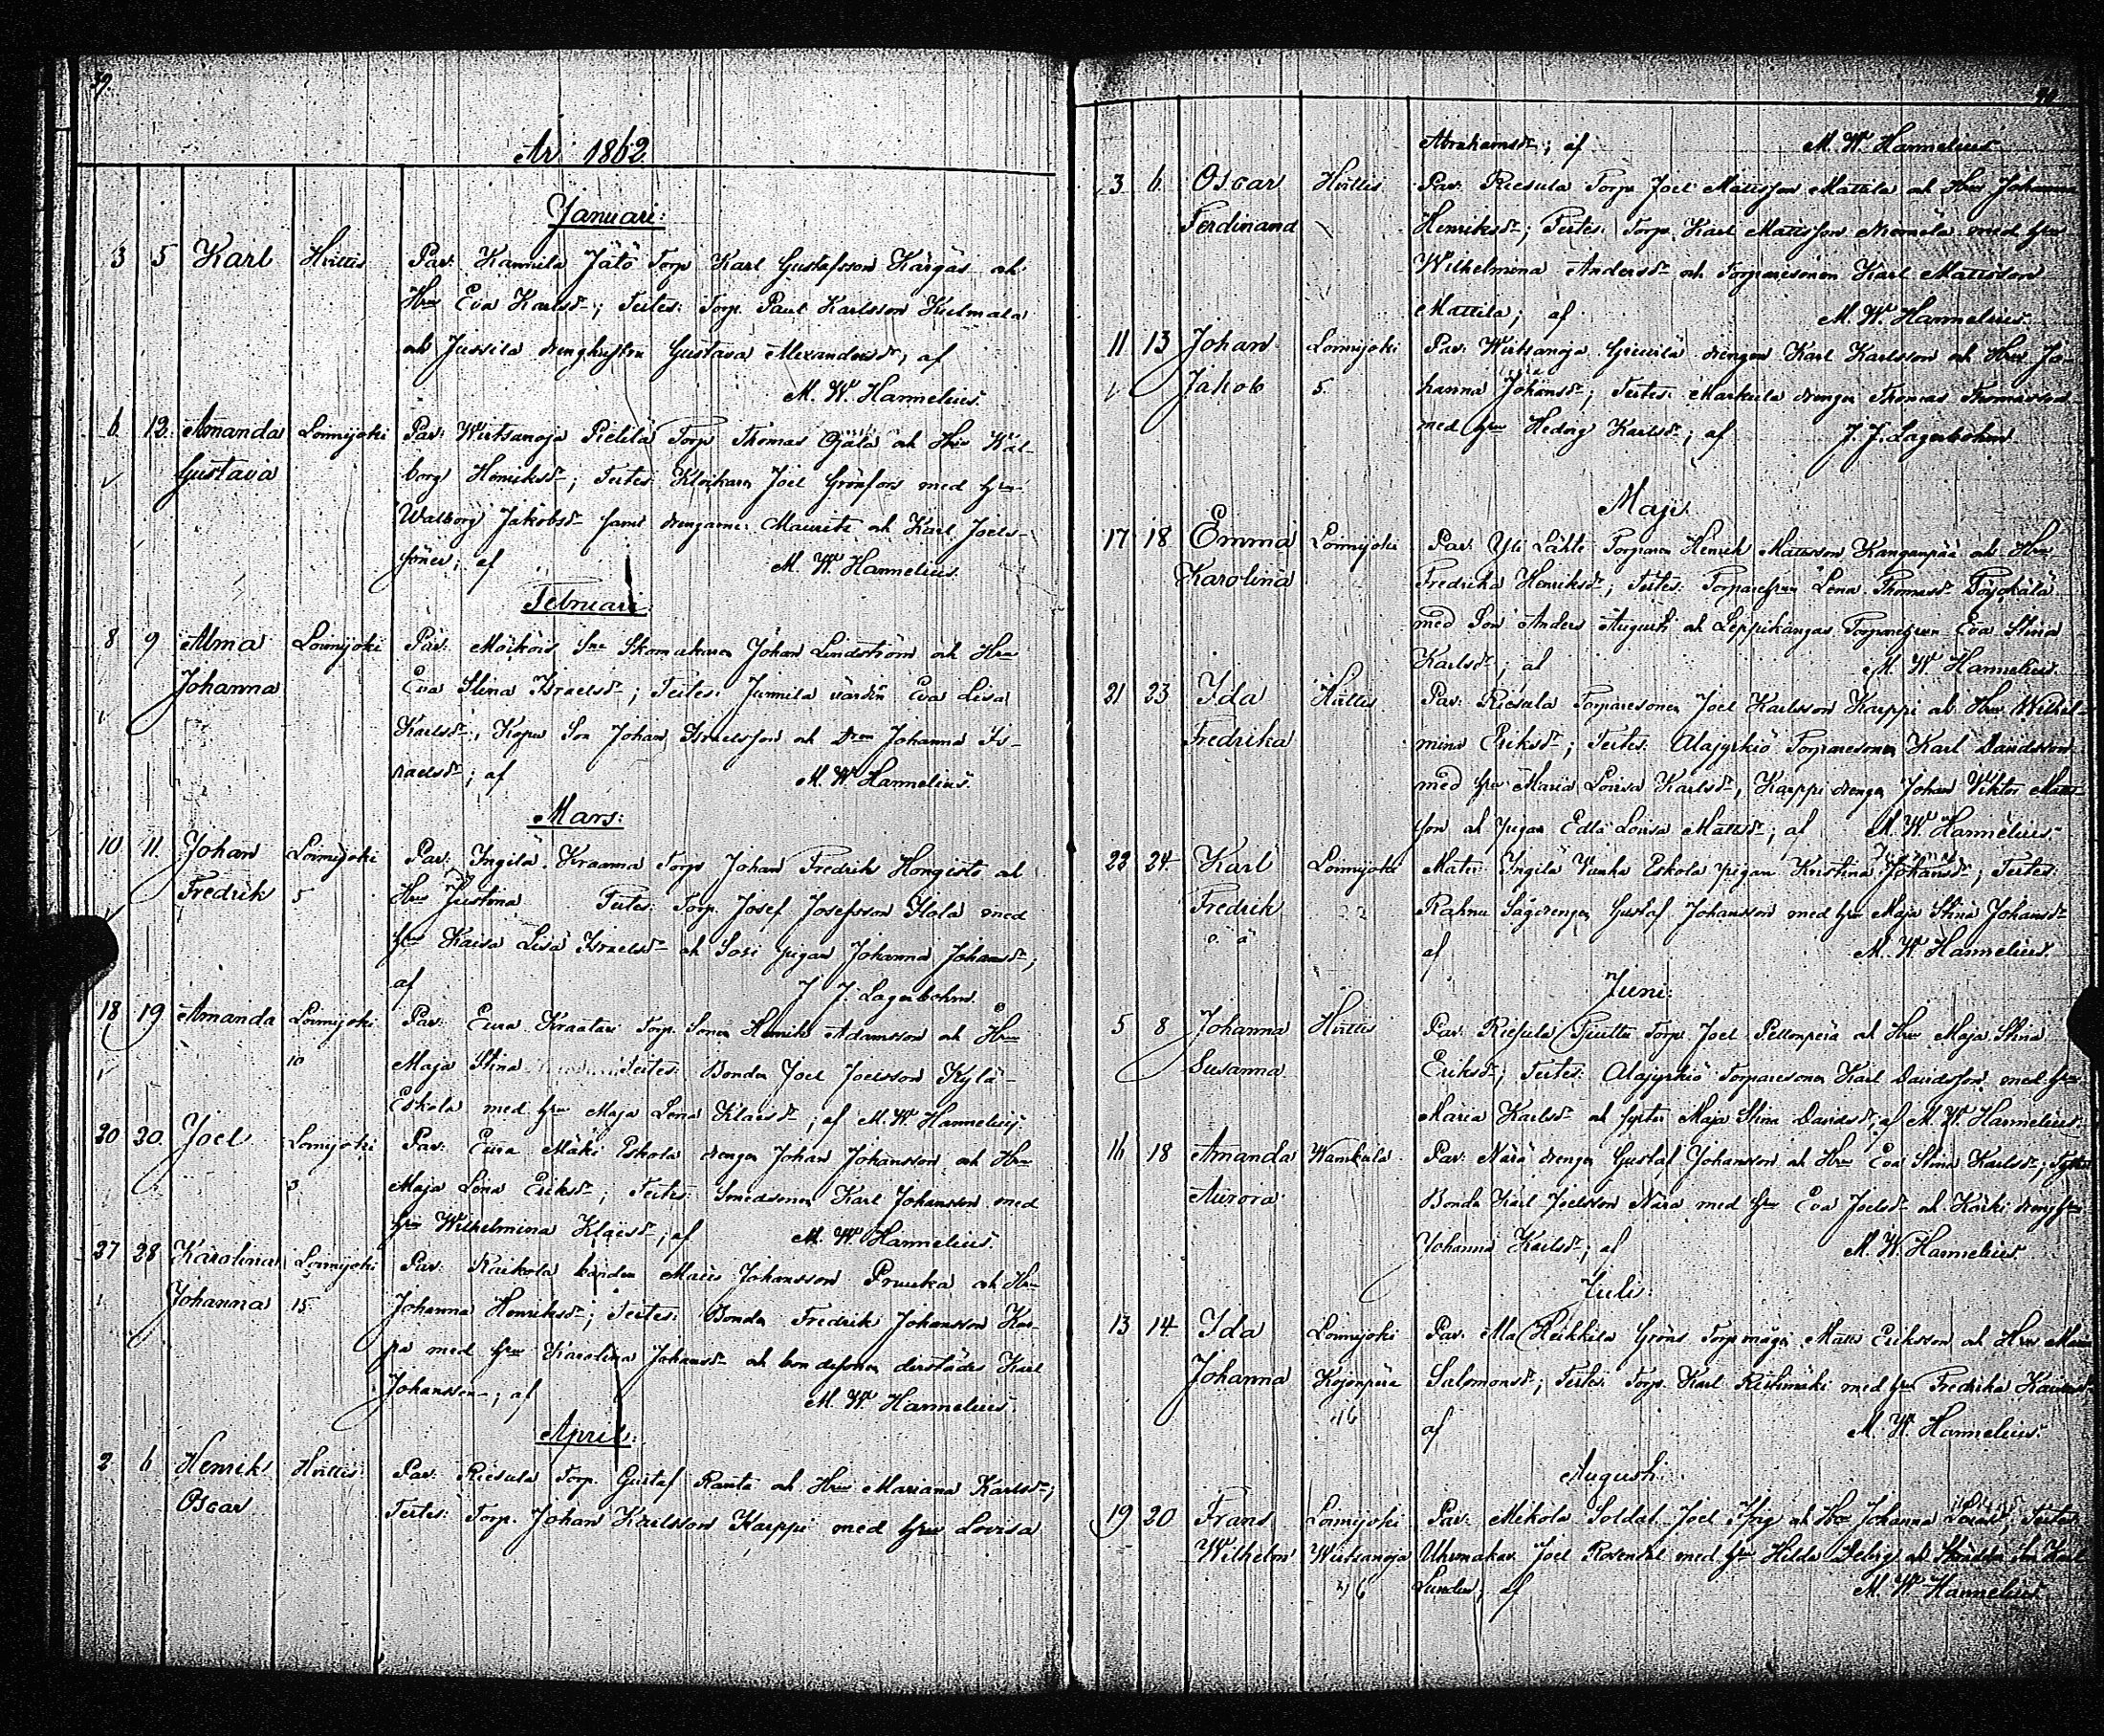 39.
År 1862
Januari:
3 5 Karl Hvittis Par: Kannila Jätö Torp Karl Gustafsson Kargas och
Hru Eva Karlsdr; Testes: Torp. Paul Karlsson Kulmala
och Jussila drenghustru Gustava Alexandersdr; af
M. W. Hannelius.
6 13. Amanda Loimijoki Par: Wirtsanoja Pietilä Torp Thomas Ojala och Hru Wal-
Gustava borg Henriksdr; Testes: Klockaren Joel Grönfors med hru
Walborg Jakobsdr samt drengarne: Maurits och Karl Joels-
söner; af M. W. Hannelius.
Februari:
8 9 Alma Loimijoki Par: Skomakaren Johan Lindström och Hru
Johanna Eva Stina Israelsdr; Testes: Junnila Eva Lisa
Karlsdr; Son Johan Israelsson och Johanna Is-
raelsdr; af M. W. Hannelius.
Mars:
10 11. Johan Loimijoki Par: Ingilä Kraanna Torp Johan Fredrik Hongisto och
Fredrik 5 Hru Justina Testes: Torp. Josef Josefsson Hola med
hru Kaisa Lisa Israelsdr och Sosi pigan Johanna Johansdr;
af J. J. Lagerbohm.
18 19 Amanda Loimijoki Par: Eura Kraatari Torp. Sonen Henrik Adamsson och Hru
10 Maja Stina Testes: Bonden Joel Joelsson Kylä-
Eskola med hru Maja Lena Klaesdr; af M. W. Hannelius.
20 20. Joel Loimijoki Par: Eura Mäki Eskola drengen Johan Johansson och Hru
3 Maja Lena Eriksdr; Testes: Smedsonen Karl Johansson med
hru Wilhelmina Klaesdr; af M. W. Hannelius.
27 28 Karolina Loimijoki Par: Raikola bonden Matts Johansson Pruuka och Hru
Johanna 15. Johanna Henriksdr; Testes: Bonden Fredrik Johansson Kar-
pa med hru Karolina Johansdr och bondesonen derstädes Karl
Johansson; af M. W. Hannelius.
April:
2 6 Henrik Hvittis Par: Riesula Torp. Gustaf Ranta och Hru Mariana Karlsdr;
Oscar Testes: Torp. Johan Karlsson Karppi med hru Lovisa
Abrahamsdr; af M. W. Hannelius
3 6. Oscar Hvittis Par: Riesula Torp Joel Mattsson Mattila och Hru Johanna
Ferdinand Henriksdr; Testes: Torp. Karl Mattsson Niemelä med hru
Wilhelmina Andersdr och Torparesonen Karl Mattsson
Mattila; af M. W. Hannelius.
11 13 Johan Loimijoki Par: Wirtsanoja drengen Karl Karlsson och Hru Jo-
Jakob 5. hanna Johansdr; Testes: Markula drengen Thomas Thomasson
med hru Hedvig Karlsdr; af J. J. Lagerbohm
Maji:
17 18 Emma Loimijoki Par: Yli Lähte Torparen Henrik Mattsson Kanganpää och Hru
Karolina Fredrika Henriksdr; Testes: Torparehrun Lena Thomasdr
med Son Anders August och Leppikangas Torparehrun Eva Stina
Karlsdr; af M. W. Hannelius
21 23 Ida Hvittis Par: Riesula Torparesonen Joel Karlsson Karppi och Hru Wilhel-
Fredrika mina Eriksdr; Testes: Alajyrkiö Torparesonen Karl Davidsson
med hru Maria Lovisa Karlsdr, Karppi drengen Johan Viktor Matts-
son och pigan Edla Lovisa Mattsdr; af M. W. Hannelius
22 24. Karl Loimijoki Mater: Ingilä Vanha Eskola pigan Kristina Johansdr; Testes:
Fredrik Rahnu Sågdrengen Gustaf Johansson med hru Maja Stina Johansdr
o. ä af M. W. Hannelius.
Juni:
5 8 Johanna Hvittis Par: Riesula Torp. Joel Peltonperä och Hru Maja Stina
Susanna Eriksdr; Testes: Alajyrkiö Torparesonen Karl Davidsson med hru
Maria Karlsdr och syster Maja Stina Davidsdr; af M. W. Hannelius
16 18 Amanda Wambula Par: Närä drengen Gustaf Johansson och Hru Eva Stina Karlsdr;
Aurora Bonden Karl Joelsson Närä med hru Eva Joelsdr och Karki drenghru
Johanna Karlsdr; af M. W. Hannelius
Juli:
13 14. Ida Loimijoki Par: Heikkilä Torpmågen Matts Eriksson och Hru
Johanna Kojonperä Salomonsdr; Testes: Torp. Karl Ristimäki med hru Fredrika
16 af M. W. Hannelius.
Augusti:
19 20 Frans Loimijoki Par: Mekola Soldat Joel och Hru Johanna
Wilhelm Wirtsanoja Uhrmakar Joel Rosendal med hru Hilda
16 af M. W. Hannelius.